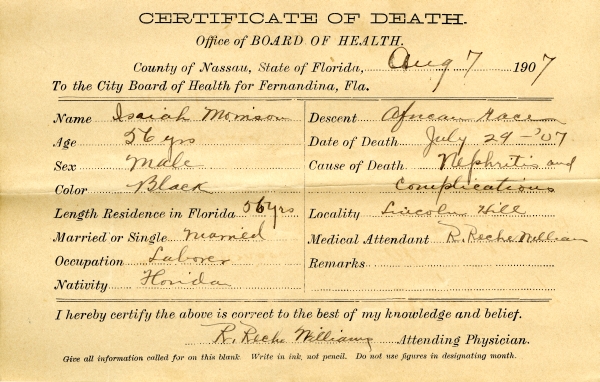 CERTIFICATE OF DEATH.
Office of BOARD OF HEALTH.
County of Nassau, State of Florida, Aug 7 1907
To the City Board of Health for Fernandina, Fla.
Name Isaiah Morrison
Age 56 yrs
Sex Male
Color Black
Length Residence in Florida 56 yrs
Married or Single Married
Occupation Laborer
Nativity Florida
Descent African Race
Date of Death July 29 - '07
Cause of Death Nephritis and
Complications
Locality Lincoln Hill
Medical Attendant R. Reche Williams
Remarks
I hereby certify the above is correct to the best of my knowledge and belief.
R. Reche Williams Attending Physician.
Give all information called for on this blank. Write in ink, not pencil. Do not use figures in designating month.